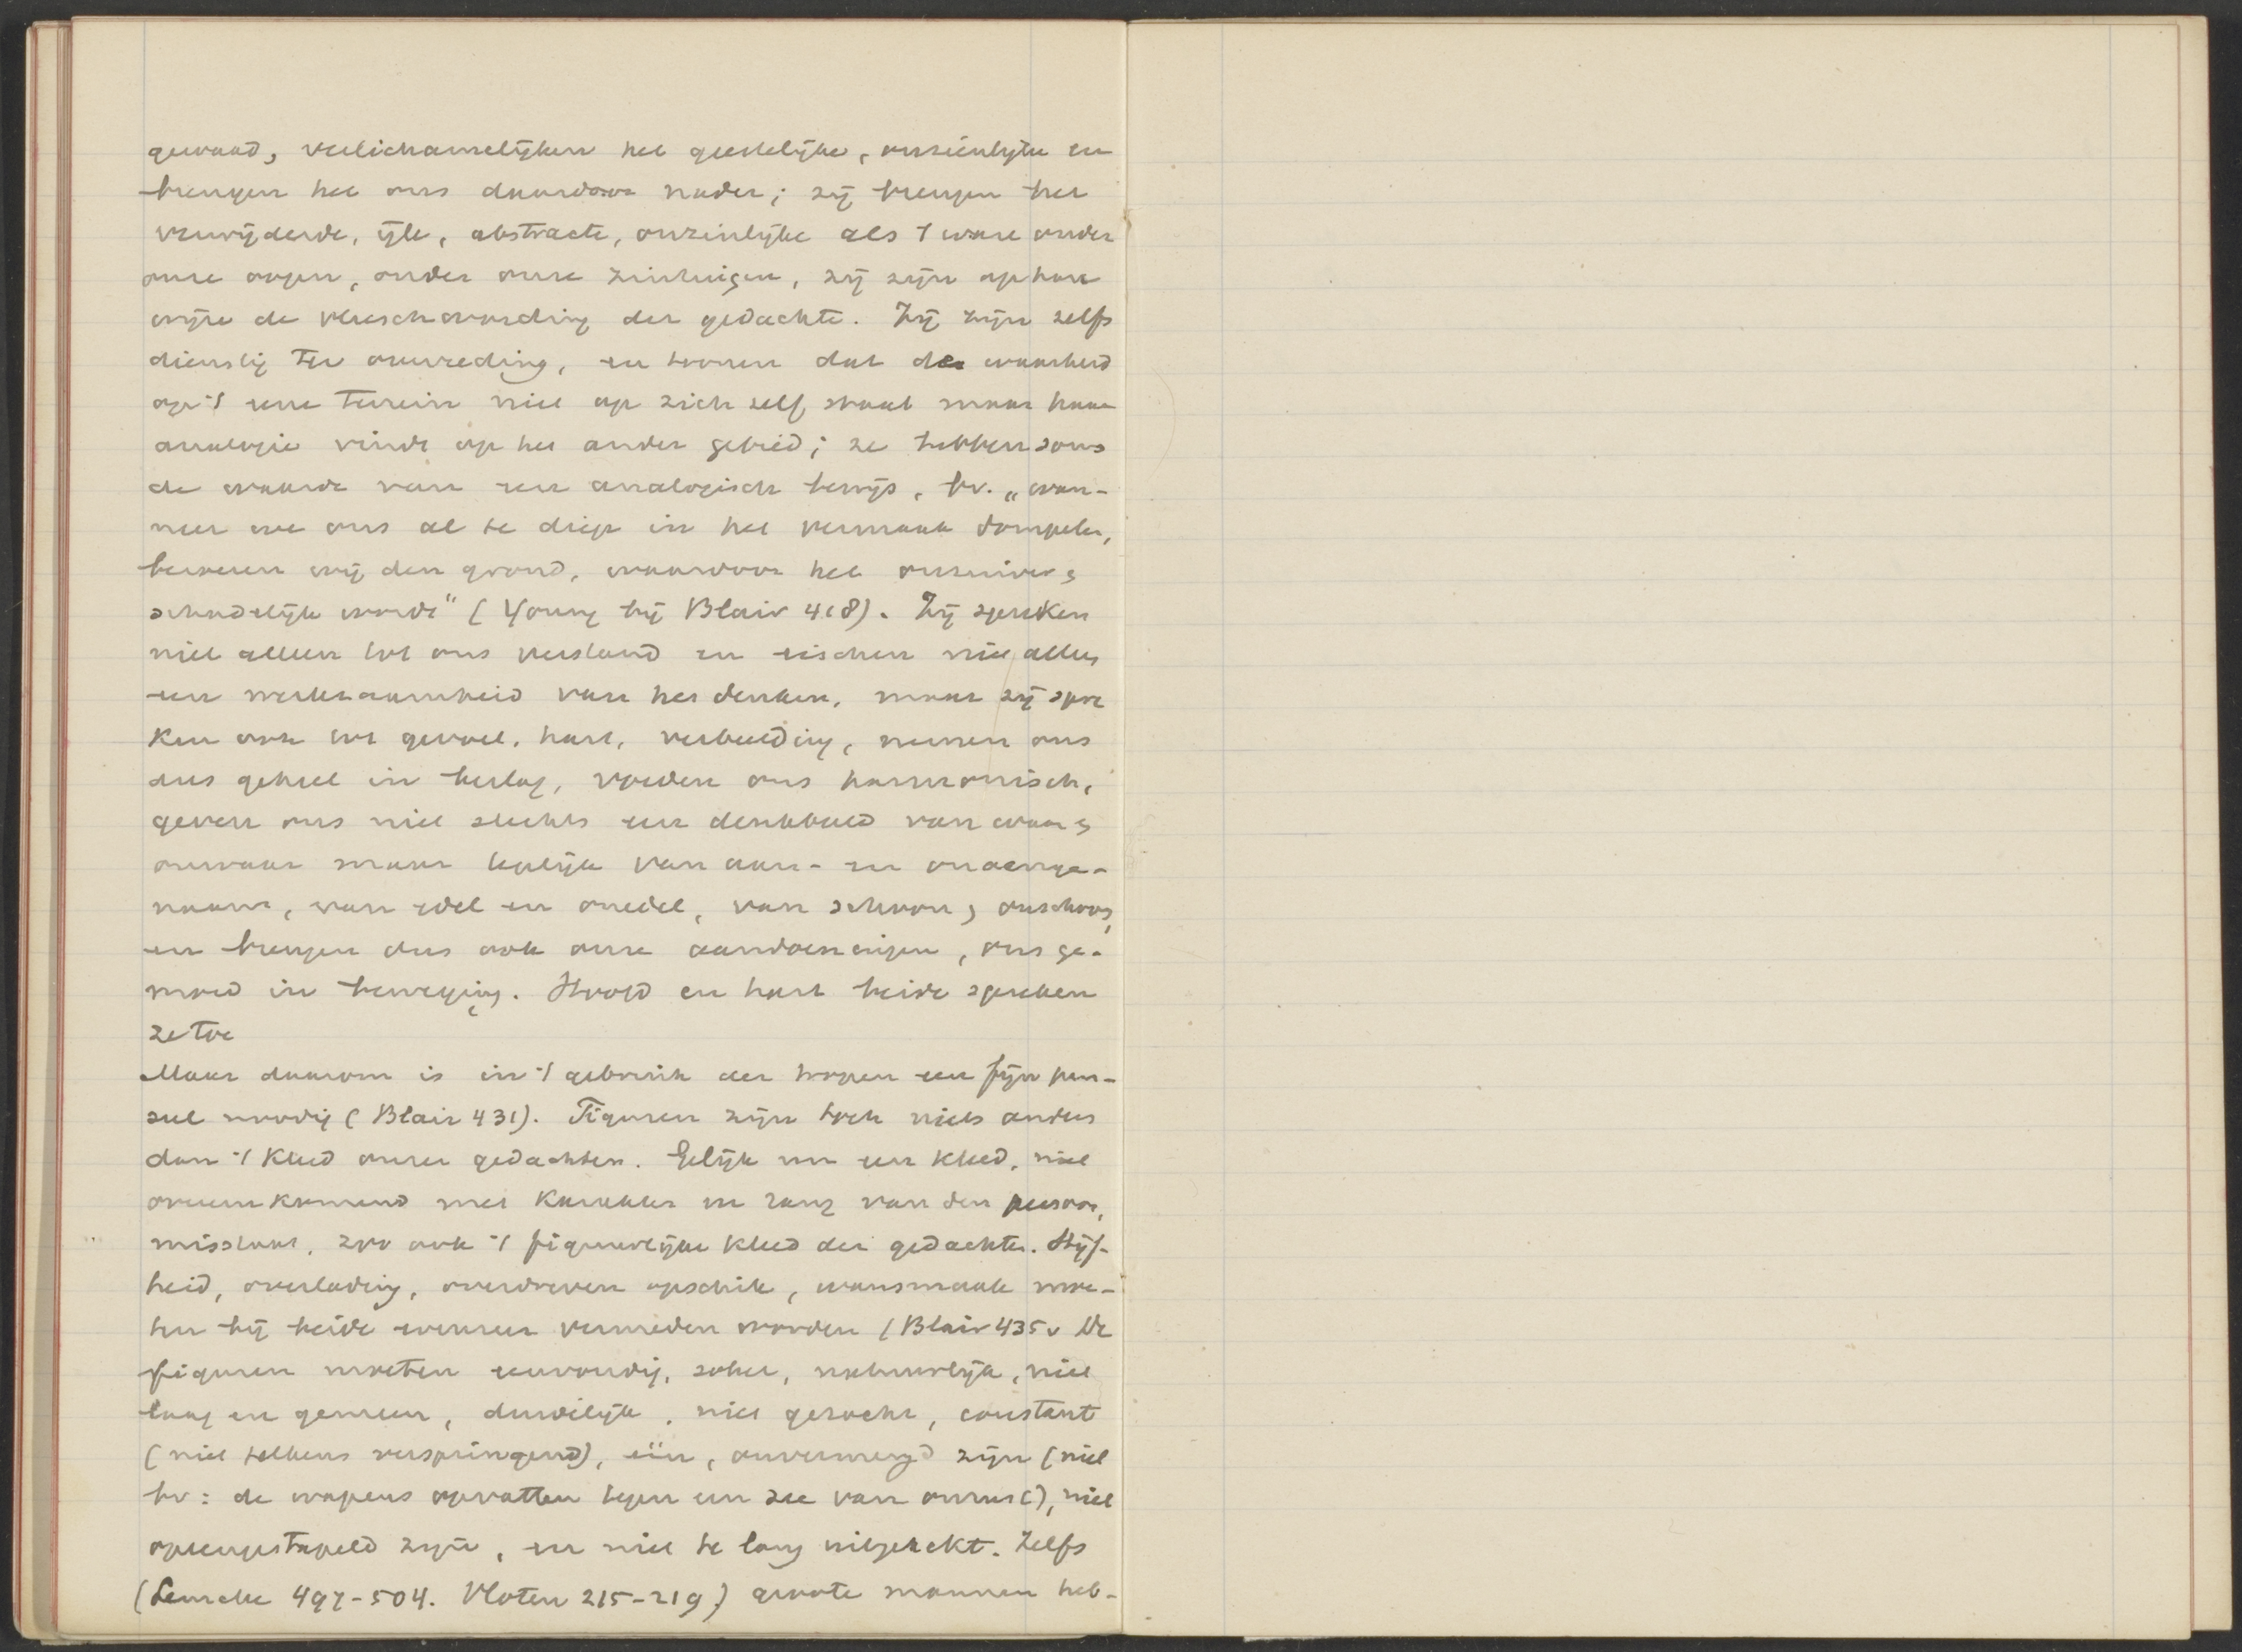 gewaad, verlichamelijken het geestelijke, onzienlijke en
brengen het ons daardoor nader; zij brengen het
verwijderde, ijle, abstracte, onzinlijke als 't ware onder
onze oogen, onder onze zintuigen, zij zijn op hare
wijze de vleeschwording der gedachte. Zij zijn zelfs
dienstig ter overreding, en toonen dat de waarheid
op 't eene terrein niet op zich zelf staat maar haar
analogie vindt op het ander gebied; ze hebben soms
de waarde van een analogisch bewijs, bv. „wan-
neer we ons al te diep in het vermaak dompelen,
beroeren wij den grond, waardoor het onzuiver &
schadelijk wordt" (Young bij Blair 418). Zij spreken
niet alleen tot ons verstand en eischen niet alleen
een werkzaamheid van het denken, maar zij spre
ken ook tot gevoel, hart, verbeelding, nemen ons
dus geheel in beslag, voeden ons harmonisch,
geven ons niet slechts een denkbeeld van waar &
onwaar maar tegelijk van aan- en onaenge-
naam, van edel en onedel, van schoon & onschoon,
en brengen dus ook onze aandoeningen, ons ge-
moed in beweging. Hoofd en hart beide spreken
ze toe
Maar daarom is in 't gebruik der tropen een fijn pen-
seel noodig (Blair 431). Figuren zijn toch niets anders
dan 't kleed onzer gedachten. Gelijk nu een kleed, niet
overeenkomend met karakter en rang van den persoon,
misstaat, zoo ook 't figuurlijke kleed der gedachte. Stijf-
heid, overlading, overdreven opschik, wansmaak moe-
ten bij beide evenzeer vermeden worden (Blair 435v De
figuren moeten eenvoudig, sober, natuurlijk, niet
laag en gemeen, duidelijk, niet gezocht, constant
(niet telkens verspringend), één, onvermengd zijn (niet
bv: de wapens opvatten tegen een zee van onrust), niet
opeengestapeld zijn, en niet te lang uitgerekt. Zelfs
(Lemcke 497-504. Vloten 215-219) groote mannen heb-